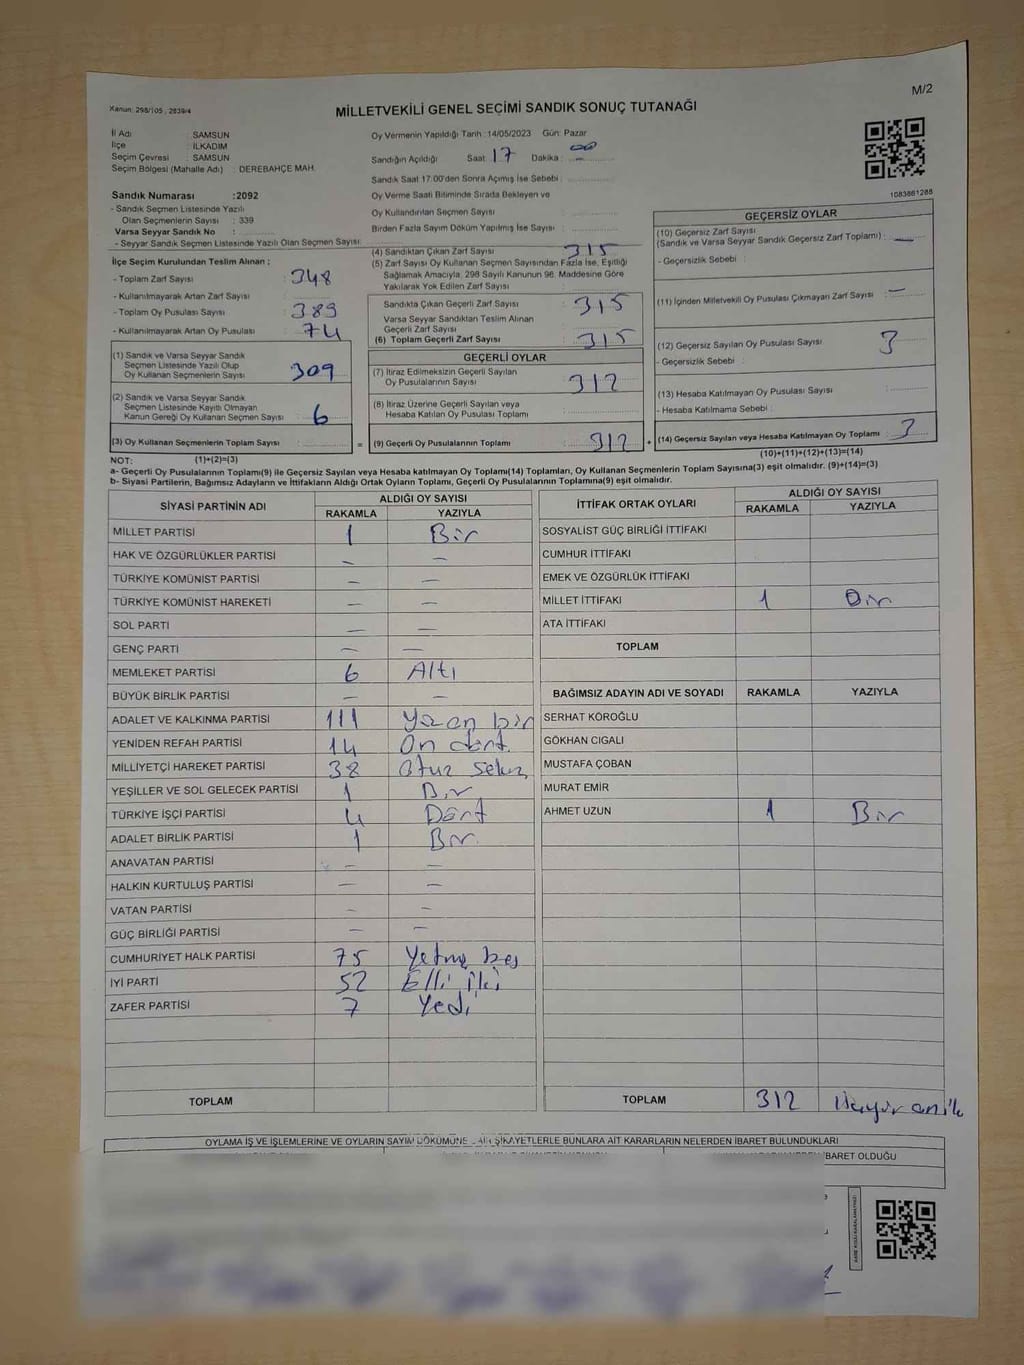 M/2
Kanun: 298/105 , 2839/4
MİLLETVEKİLİ GENEL SEÇİMİ SANDIK SONUÇ TUTANAĞI
İl Adı : SAMSUN
İlçe : İLKADIM
Seçim Çevresi : SAMSUN
Seçim Bölgesi (Mahalle Adı) : DEREBAHÇE MAH.
Sandık Numarası :2092
- Sandık Seçmen Listesinde Yazılı
Olan Seçmenlerin Sayısı : 339
Varsa Seyyar Sandık No :
- Seyyar Sandık Seçmen Listesinde Yazılı Olan Seçmen Sayısı:
Oy Vermenin Yapıldığı Tarih :14/05/2023 Gün: Pazar
Sandığın Açıldığı Saat: 17 Dakika : 00
Sandık Saat 17:00'den Sonra Açımış İse Sebebi :
Oy Verme Saati Bitiminde Sırada Bekleyen ve
Oy Kullandırılan Seçmen Sayısı :
Birden Fazla Sayım Döküm Yapılmış İse Sayısı :
1083861288
İlçe Seçim Kurulundan Teslim Alınan ;
- Toplam Zarf Sayısı : 348
- Kullanılmayarak Artan Zarf Sayısı :
- Toplam Oy Pusulası Sayısı : 389
- Kullanılmayarak Artan Oy Pusulası : 74
(1) Sandık ve Varsa Seyyar Sandık
Seçmen Listesinde Yazılı Olup
Oy Kullanan Seçmenlerin Sayısı : 309
(2) Sandık ve Varsa Seyyar Sandık
Seçmen Listesinde Kayıtlı Olmayan
Kanun Gereği Oy Kullanan Seçmen Sayısı : 6
(3) Oy Kullanan Seçmenlerin Toplam Sayısı :
(4) Sandıktan Çıkan Zarf Sayısı : 315
(5) Zarf Sayısı Oy Kullanan Seçmen Sayısından Fazla İse, Eşitliği
Sağlamak Amacıyla, 298 Sayılı Kanunun 98. Maddesine Göre
Yakılarak Yok Edilen Zarf Sayısı :
Sandıkta Çıkan Geçerli Zarf Sayısı : 315
Varsa Seyyar Sandıktan Teslim Alınan
Geçerli Zarf Sayısı :
(6) Toplam Geçerli Zarf Sayısı : 315
GEÇERLİ OYLAR
(7) İtiraz Edilmeksizin Geçerli Sayılan
Oy Pusulalarının Sayısı : 312
(8) İtiraz Üzerine Geçerli Sayılan veya
Hesaba Katılan Oy Pusulası Toplamı :
= (9) Geçerli Oy Pusulalarının Toplamı : 312 +
GEÇERSİZ OYLAR
(10) Geçersiz Zarf Sayısı
(Sandık ve Varsa Seyyar Sandık Geçersiz Zarf Toplamı) : —
- Geçersizlik Sebebi :
(11) İçinden Milletvekili Oy Pusulası Çıkmayan Zarf Sayısı : —
(12) Geçersiz Sayılan Oy Pusulası Sayısı : 3
- Geçersizlik Sebebi :
(13) Hesaba Katılmayan Oy Pusulası Sayısı :
- Hesaba Katılmama Sebebi :
(14) Geçersiz Sayılan veya Hesaba Katılmayan Oy Toplamı : 3
NOT: (1)+(2)=(3) (10)+(11)+(12)+(13)=(14)
a- Geçerli Oy Pusulalarının Toplamı(9) ile Geçersiz Sayılan veya Hesaba katılmayan Oy Toplamı(14) Toplamları, Oy Kullanan Seçmenlerin Toplam Sayısına(3) eşit olmalıdır. (9)+(14)=(3)
b- Siyasi Partilerin, Bağımsız Adayların ve İttifakların Aldığı Ortak Oyların Toplamı, Geçerli Oy Pusulalarının Toplamına(9) eşit olmalıdır.
SİYASİ PARTİNİN ADI ALDIĞI OY SAYISI
RAKAMLA YAZIYLA
MİLLET PARTİSİ 1 Bir
HAK VE ÖZGÜRLÜKLER PARTİSİ — —
TÜRKİYE KOMÜNİST PARTİSİ — —
TÜRKİYE KOMÜNİST HAREKETİ — —
SOL PARTİ — —
GENÇ PARTİ — —
MEMLEKET PARTİSİ 6 Altı
BÜYÜK BİRLİK PARTİSİ — —
ADALET VE KALKINMA PARTİSİ 111 Yüz on bir
YENİDEN REFAH PARTİSİ 14 On dört
MİLLİYETÇİ HAREKET PARTİSİ 38 Otuz sekiz
YEŞİLLER VE SOL GELECEK PARTİSİ 1 Bir
TÜRKİYE İŞÇİ PARTİSİ 4 Dört
ADALET BİRLİK PARTİSİ 1 Bir
ANAVATAN PARTİSİ — —
HALKIN KURTULUŞ PARTİSİ — —
VATAN PARTİSİ — —
GÜÇ BİRLİĞİ PARTİSİ — —
CUMHURİYET HALK PARTİSİ 75 Yetmiş beş
İYİ PARTİ 52 Elli iki
ZAFER PARTİSİ 7 Yedi
TOPLAM
İTTİFAK ORTAK OYLARI ALDIĞI OY SAYISI
RAKAMLA YAZIYLA
SOSYALİST GÜÇ BİRLİĞİ İTTİFAKI
CUMHUR İTTİFAKI
EMEK VE ÖZGÜRLÜK İTTİFAKI
MİLLET İTTİFAKI 1 Bir
ATA İTTİFAKI
TOPLAM
BAĞIMSIZ ADAYIN ADI VE SOYADI RAKAMLA YAZIYLA
SERHAT KÖROĞLU
GÖKHAN CIGALI
MUSTAFA ÇOBAN
MURAT EMİR
AHMET UZUN 1 Bir
TOPLAM 312
OYLAMA İŞ VE İŞLEMLERİNE VE OYLARIN SAYIM DÖKÜMÜNE ŞİKAYETLERLE BUNLARA AİT KARARLARIN NELERDEN İBARET BULUNDUKLARI
İBARET OLDUĞU